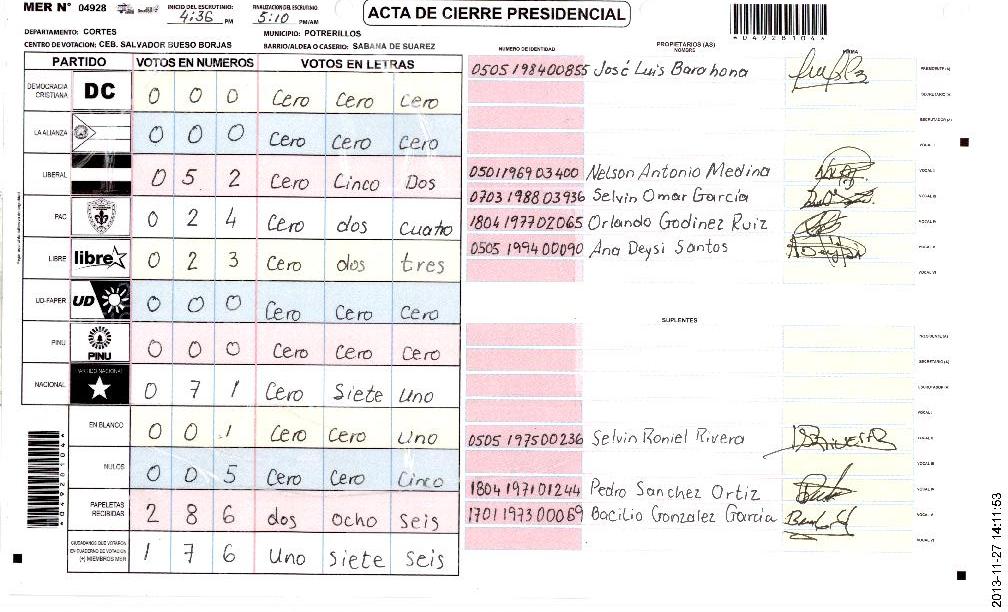 MER N° 04928
INICIO DEL ESCRUTINIO: 4:36 PM
FINALIZACION DEL ESCRUTINIO: 5:10 PM/AM
ACTA DE CIERRE PRESIDENCIAL
*04928104*
DEPARTAMENTO: CORTES
MUNICIPIO: POTRERILLOS
CENTRO DE VOTACION: CEB. SALVADOR BUESO BORJAS
BARRIO/ALDEA O CASERIO: SABANA DE SUAREZ
PARTIDO VOTOS EN NUMEROS VOTOS EN LETRAS
DEMOCRACIA CRISTIANA DC 0 0 0 Cero Cero Cero
LA ALIANZA 0 0 0 Cero Cero Cero
LIBERAL 0 5 2 Cero Cinco Dos
PAC 0 2 4 Cero dos cuatro
LIBRE libre 0 2 3 Cero dos tres
UD-FAPER UD 0 0 0 Cero Cero Cero
PINU PINU 0 0 0 Cero Cero Cero
NACIONAL PARTIDO NACIONAL 0 7 1 Cero Siete Uno
EN BLANCO 0 0 1 Cero Cero Uno
NULOS 0 0 5 Cero Cero Cinco
PAPELETAS RECIBIDAS 2 8 6 dos ocho seis
CIUDADANOS QUE VOTARON EN CUADERNO DE VOTACION (+) MIEMBROS MER 1 7 6 Uno siete seis
*04928104*
NUMERO DE IDENTIDAD
PROPIETARIOS (AS)
NOMBRE
FIRMA
0505198400855 José Luis Barahona PRESIDENTE (A)
SECRETARIO (A)
ESCRUTADOR (A)
VOCAL I
0501196903400 Nelson Antonio Medina VOCAL II
0703198803936 Selvin Omar García VOCAL III
1804197702065 Orlando Godinez Ruiz VOCAL IV
0505199400090 Ana Deysi Santos VOCAL V
VOCAL VI
SUPLENTES
PRESIDENTE (A)
SECRETARIO (A)
ESCRUTADOR (A)
VOCAL I
0505197500236 Selvin Roniel Rivera VOCAL II
VOCAL III
1804197101244 Pedro Sanchez Ortiz VOCAL IV
1701197300069 Bacilio Gonzalez García VOCAL V
VOCAL VI
2013-11-27 14:11:53